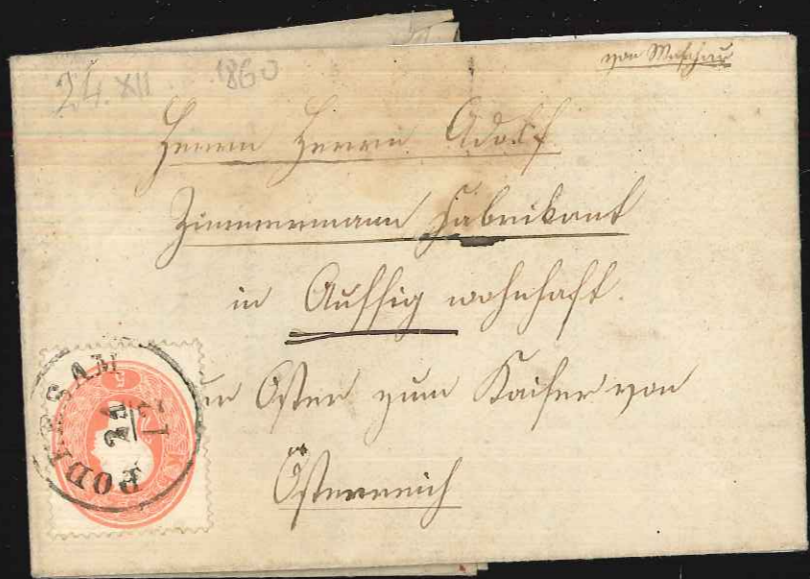 24. XII 1860
von Maschau
Herrn Herrn Adolf
Zimmermann Fabrikant
in Aussig wohnhaft.
Oster zum Kaiser von
Österreich
PODERSAM
24
12